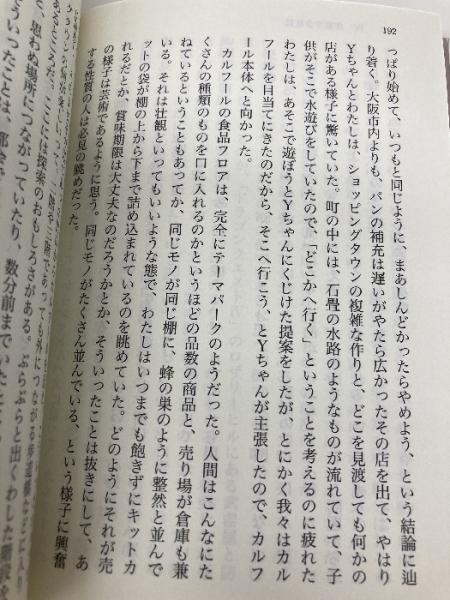 192
っぱり始めて、いつもと同じように、まあしんどかったらやめよう、という結論に辿
り着く。大阪市内よりも、パンの補充は遅いがやたら広かったその店を出て、やはり
Yちゃんとわたしは、ショッピングタウンの複雑な作りと、どこを見渡しても何かの
店がある様子に驚いていた。町の中には、石畳の水路のようなものが流れていて、子
供がそこで水遊びをしていたので、「どこかへ行く」ということを考えるのに疲れた
わたしは、あそこで遊ぼうとYちゃんにくじけた提案をしたが、とにかく我々はカル
フールを目当てにきたのだから、そこへ行こう、とYちゃんが主張したので、カルフ
ール本体へと向かった。
カルフールの食品フロアは、完全にテーマパークのようだった。人間はこんなにた
くさんの種類のものを口に入れるのかというほどの品数の商品と、売り場が倉庫も兼
ねているということもあってか、同じモノが同じ棚に、蜂の巣のように整然と並んで
いる。それは壮観といってもいいような態で、わたしはいつまでも飽きずにキットカ
ットの袋が棚の上から下まで詰め込まれているのを眺めていた。どのようにそれが売
れるだとか、賞味期限は大丈夫なのだろうかとか、そういったことは抜きにして、あ
の様子は芸術であるように思う。同じモノがたくさん並んでいる、という様子に興奮
する性質の人は必見の眺めだった。
思わぬ場所につながっていたり、数分前までいたと